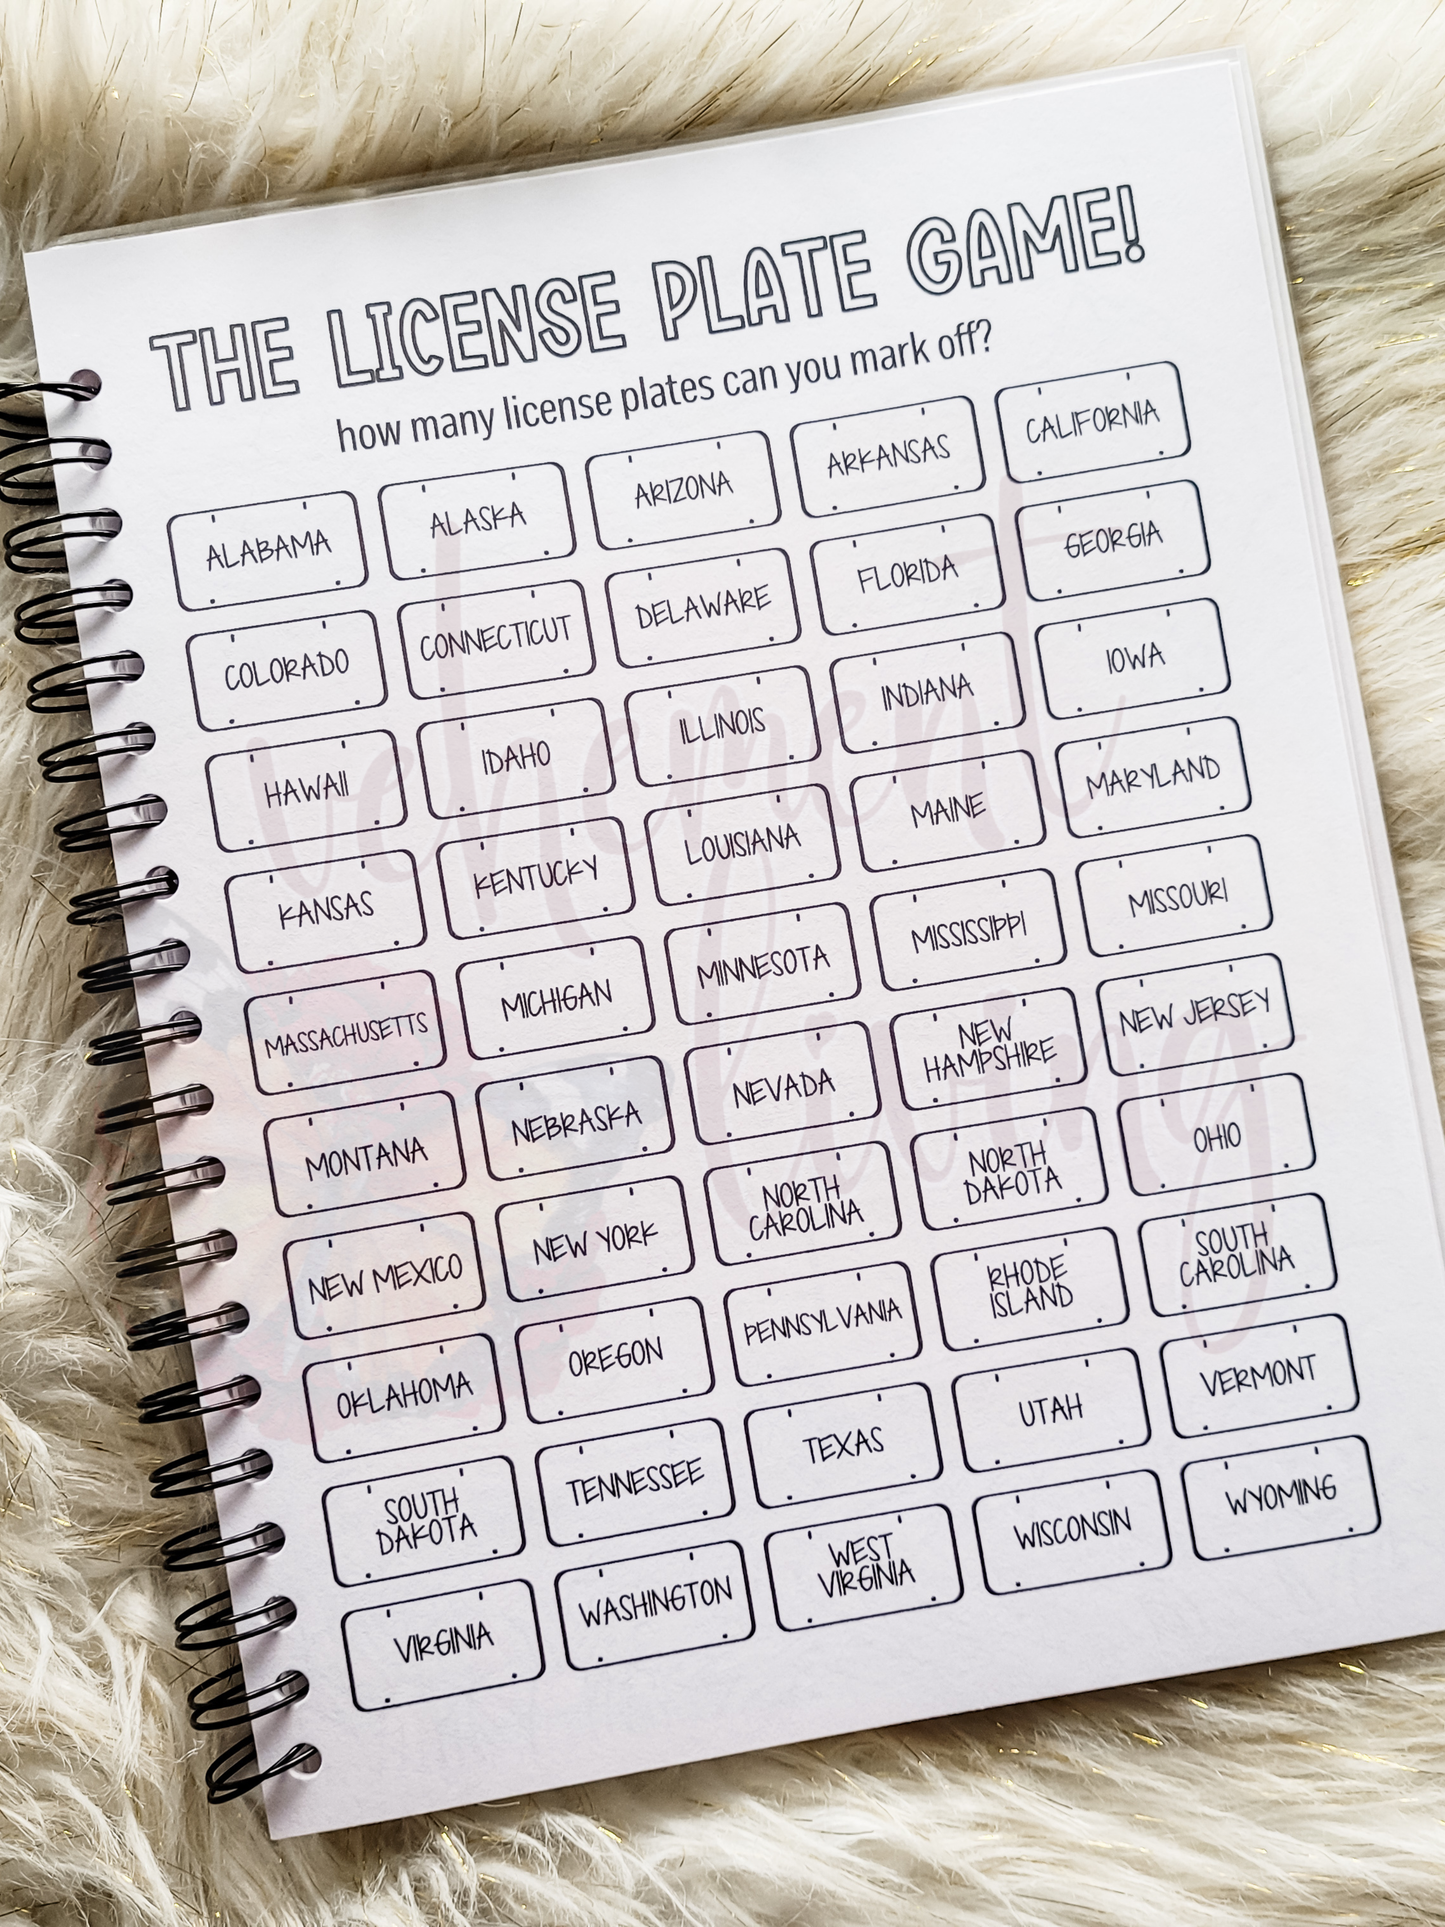 THE LICENSE PLATE GAME!
how many license plates can you mark off?
ALABAMA
ALASKA
ARIZONA
ARKANSAS
CALIFORNIA
COLORADO
CONNECTICUT
DELAWARE
FLORIDA
GEORGIA
HAWAII
IDAHO
ILLINOIS
INDIANA
IOWA
KANSAS
KENTUCKY
LOUISIANA
MAINE
MARYLAND
MASSACHUSETTS
MICHIGAN
MINNESOTA
MISSISSIPPI
MISSOURI
MONTANA
NEBRASKA
NEVADA
NEW
HAMPSHIRE
NEW JERSEY
NEW MEXICO
NEW YORK
NORTH
CAROLINA
NORTH
DAKOTA
OHIO
OKLAHOMA
OREGON
PENNSYLVANIA
RHODE
ISLAND
SOUTH
CAROLINA
SOUTH
DAKOTA
TENNESSEE
TEXAS
UTAH
VERMONT
VIRGINIA
WASHINGTON
WEST
VIRGINIA
WISCONSIN
WYOMING
vehement
living